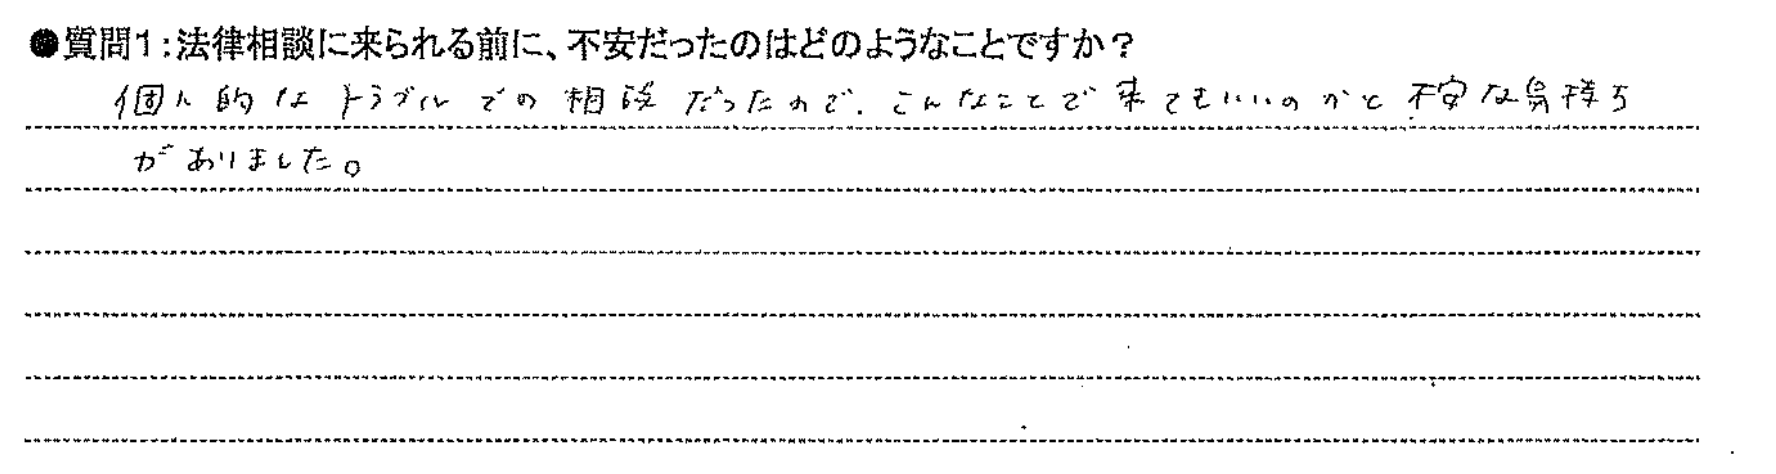 ●質問1:法律相談に来られる前に、不安だったのはどのようなことですか?
個人的なトラブルでの相談だったので、こんなことで来てもいいのかと不安な気持ち
がありました。